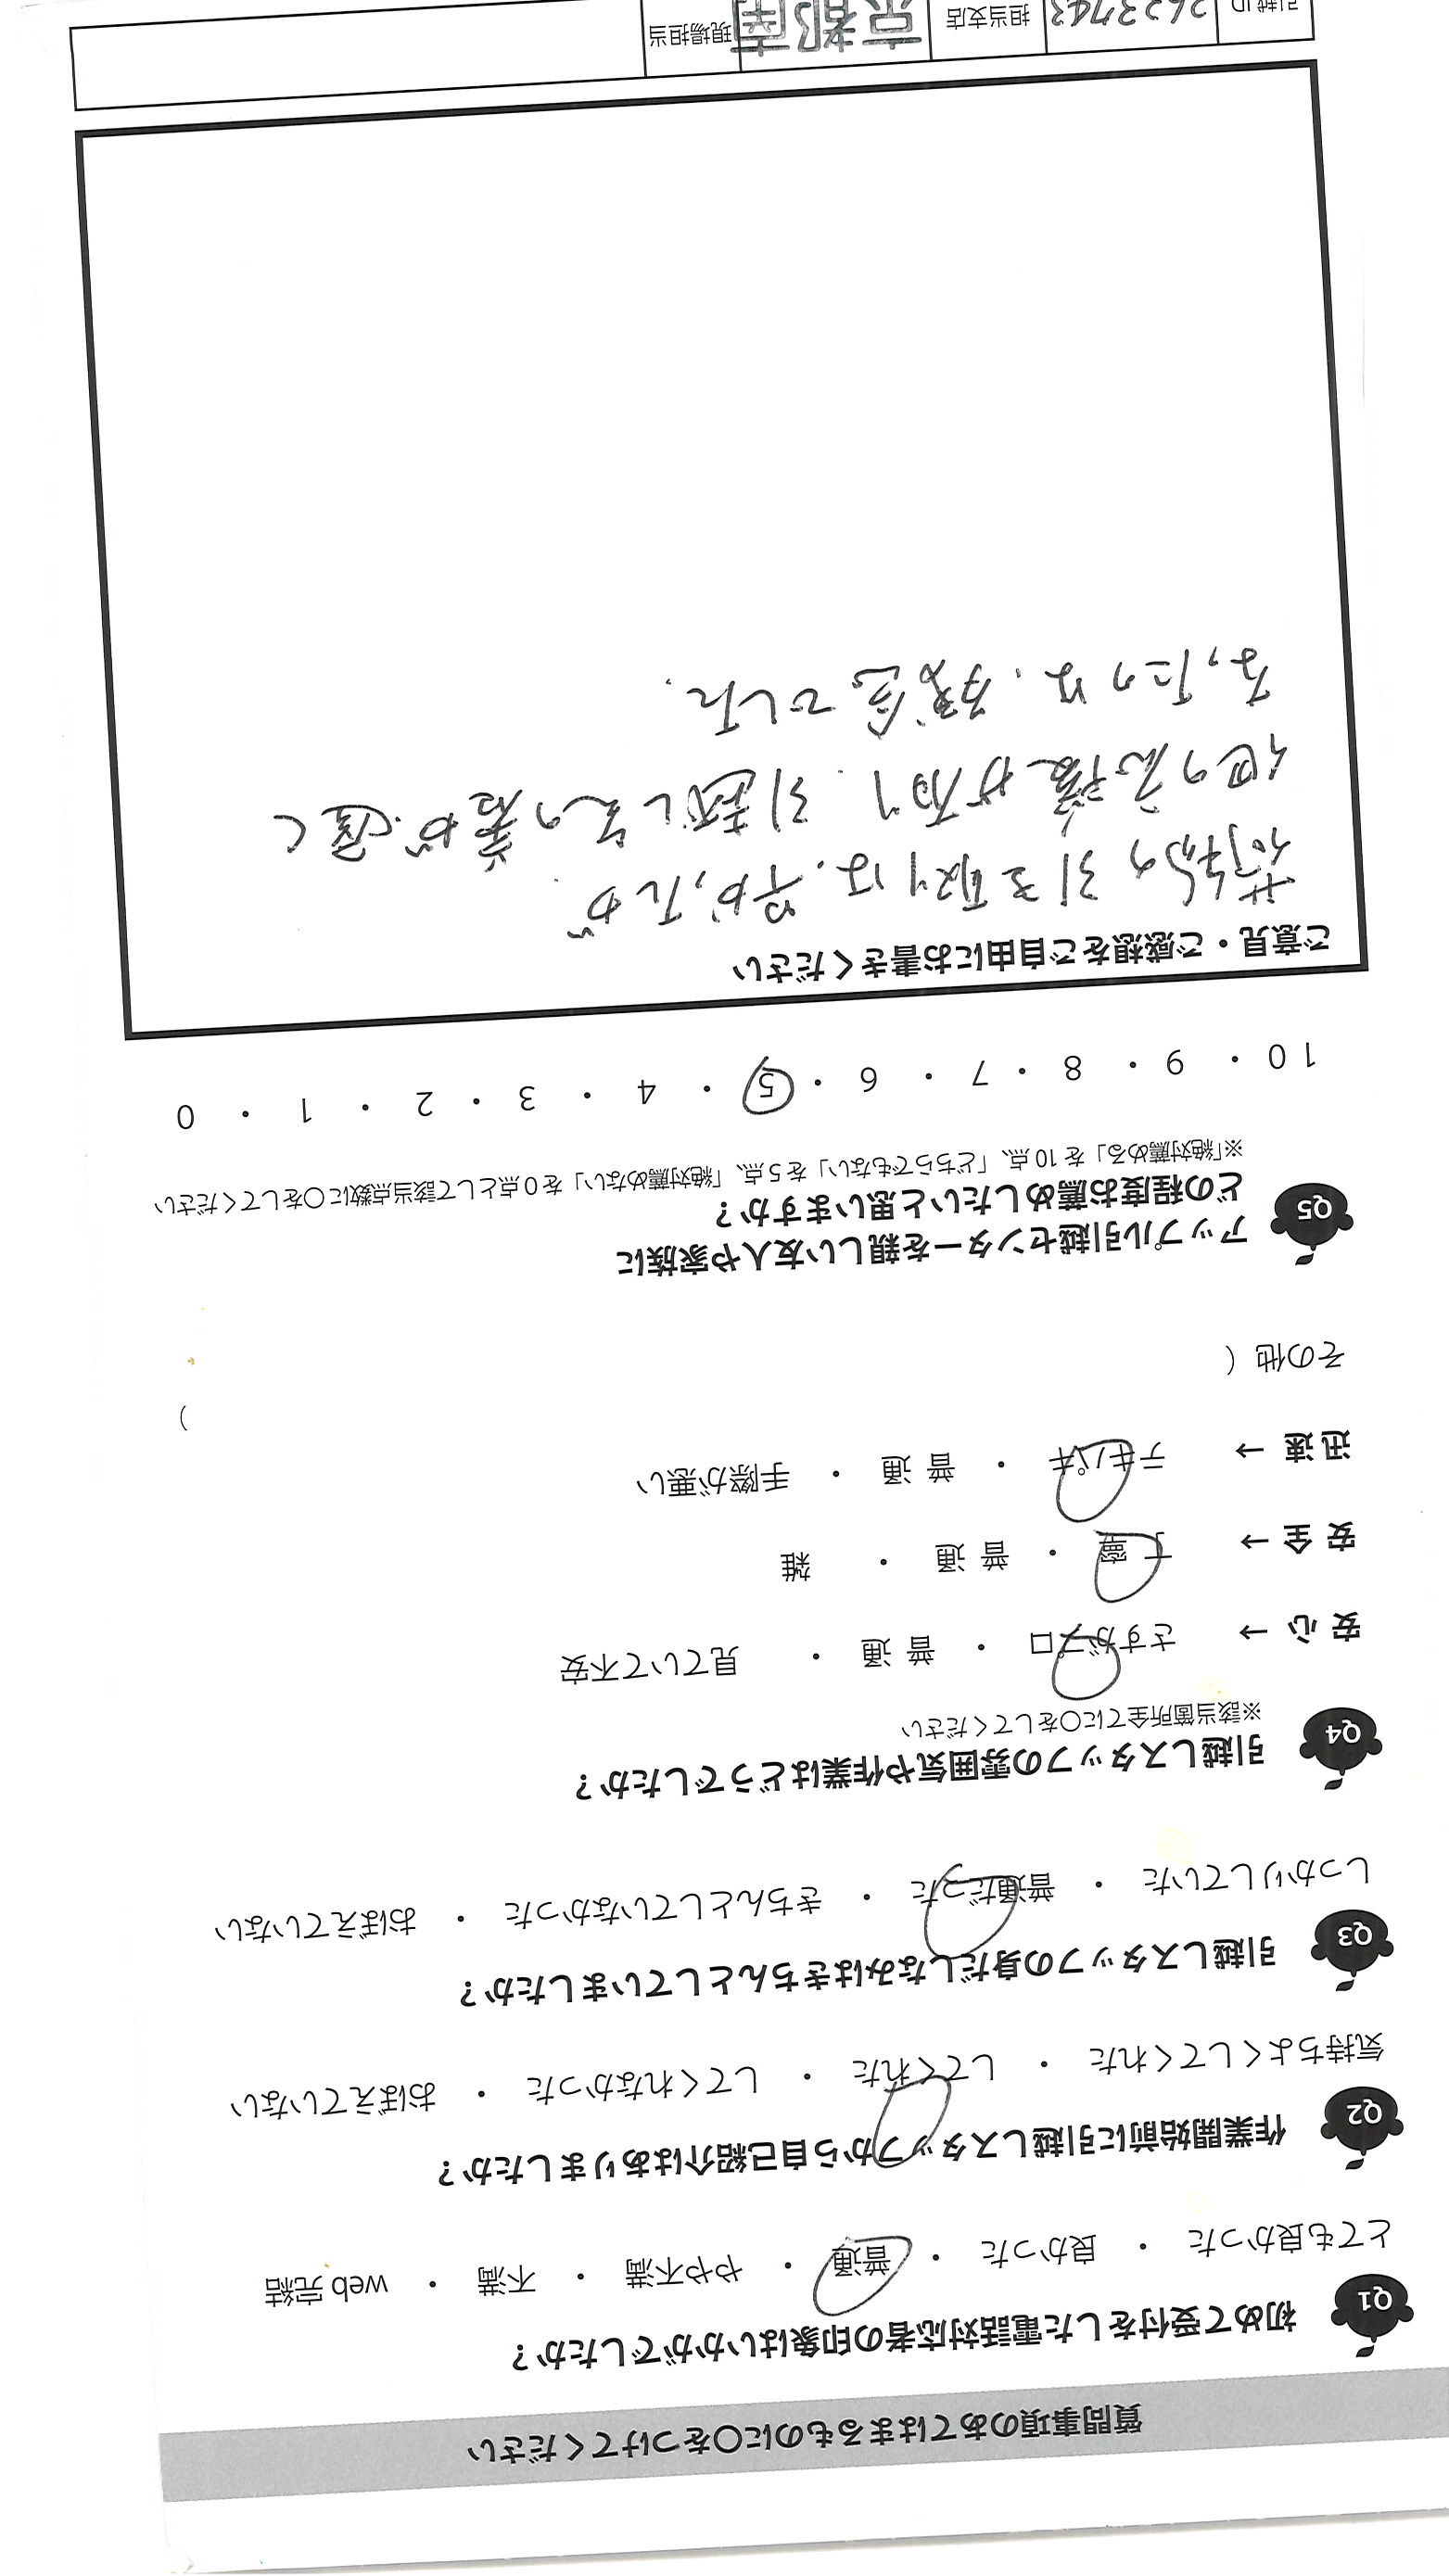 質問事項のあてはまるものに〇をつけてください
Q1 初めて受付をした電話対応者の印象はいかがでしたか？
とても良かった ・ 良かった ・ 普通 ・ やや不満 ・ 不満 ・ web 完結
Q2 作業開始前に引越しスタッフから自己紹介はありましたか？
気持ちよくしてくれた ・ してくれた ・ してくれなかった ・ おぼえていない
Q3 引越しスタッフの身だしなみはきちんとしていましたか？
しっかりしていた ・ 普通だった ・ きちんとしていなかった ・ おぼえていない
Q4 引越しスタッフの雰囲気や作業はどうでしたか？
※該当箇所全てに〇をしてください
安心 → さすがプロ ・ 普通 ・ 見ていて不安
安全 → 丁寧 ・ 普通 ・ 雑
迅速 → テキパキ ・ 普通 ・ 手際が悪い
その他 （ ）
Q5 アップル引越センターを親しい友人や家族に
どの程度お薦めしたいと思いますか？
※「絶対薦める」を 10 点、「どちらでもない」を 5 点、「絶対薦めない」を 0 点として該当点数に〇をしてください
10 ・ 9 ・ 8 ・ 7 ・ 6 ・ 5 ・ 4 ・ 3 ・ 2 ・ 1 ・ 0
ご意見・ご感想をご自由にお書きください
荷物の引き取りは、早かったが
他の応援が有り、引越し先の着が、遅く
なったのは、残念でした。
引越 ID 2623743 担当支店 京都南 現場担当